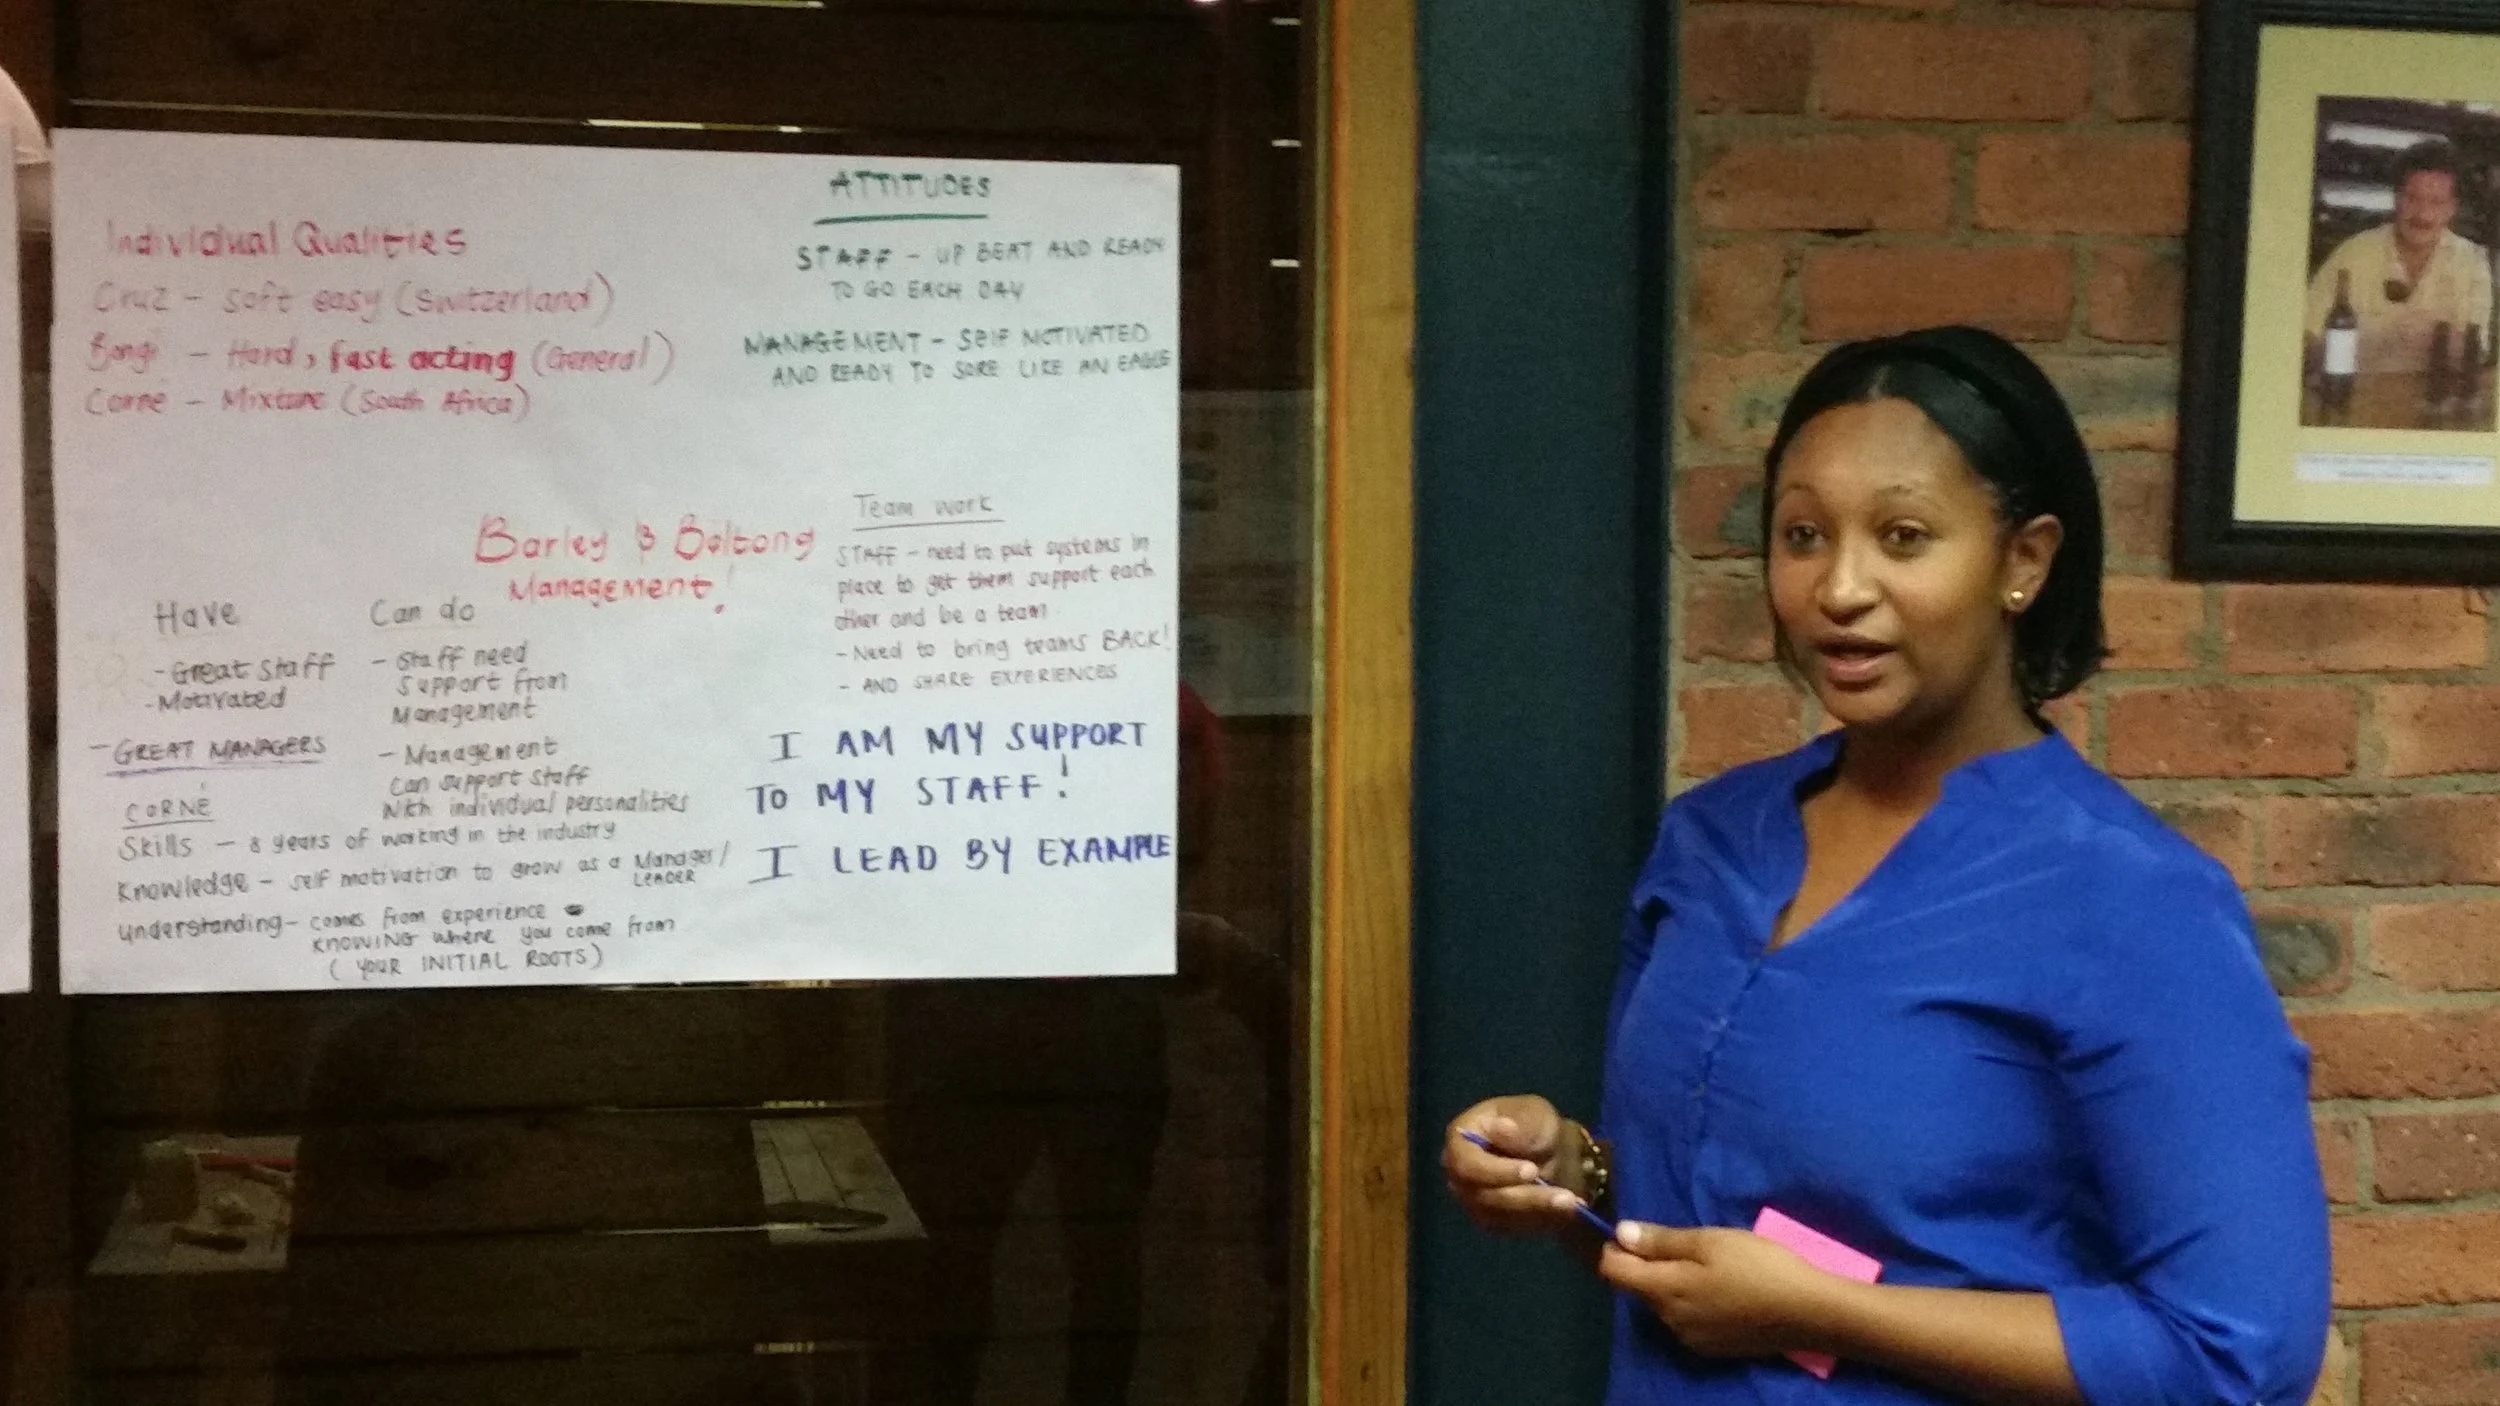 Individual Qualities
Cruz - soft easy (Switzerland)
Bongi - Hard, fast acting (General)
Corné - Mixture (South Africa)
ATTITUDES
STAFF - UP BEAT AND READY
TO GO EACH DAY
MANAGEMENT - SELF MOTIVATED
AND READY TO SORE LIKE AN EAGLE
Barley & Biltong
Management!
Have
- Great Staff
- Motivated
- GREAT MANAGERS
Can do
- Staff need
Support from
Management
- Management
Can support staff
With individual personalities
CORNÉ
Skills - 8 years of working in the industry
Knowledge - self motivation to grow as a Manager/
LEADER
Understanding - comes from experience
KNOWING where you come from
(YOUR INITIAL ROOTS)
Team work
STAFF - need to put systems in
place to get them support each
other and be a team
- Need to bring teams BACK!
- AND SHARE EXPERIENCES
I AM MY SUPPORT
TO MY STAFF!
I LEAD BY EXAMPLE